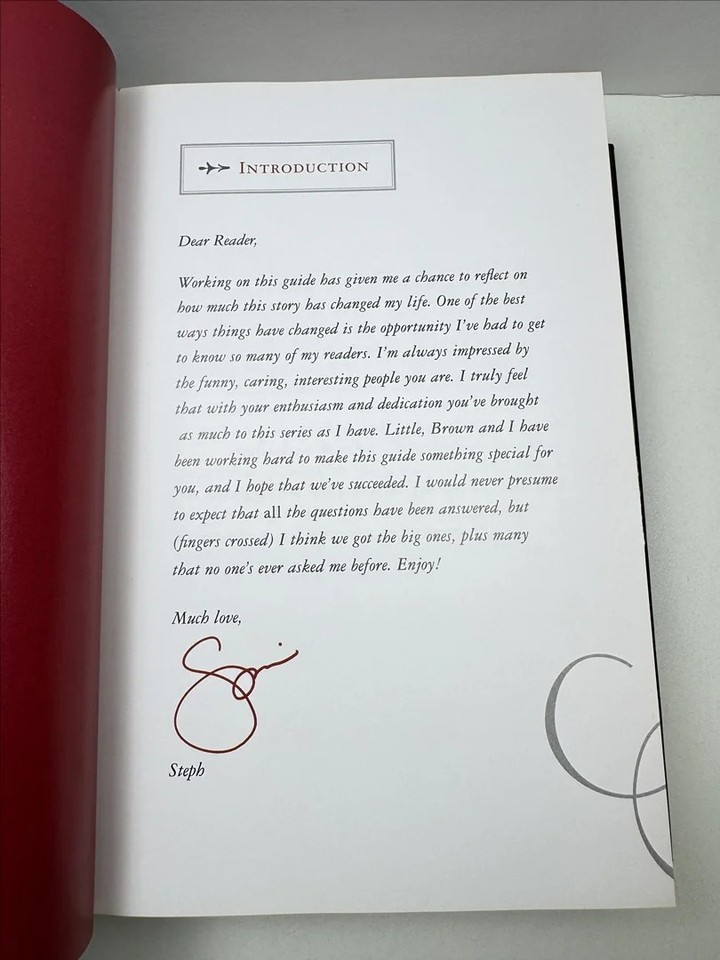 INTRODUCTION
Dear Reader,
Working on this guide has given me a chance to reflect on
how much this story has changed my life. One of the best
ways things have changed is the opportunity I've had to get
to know so many of my readers. I'm always impressed by
the funny, caring, interesting people you are. I truly feel
that with your enthusiasm and dedication you've brought
as much to this series as I have. Little, Brown and I have
been working hard to make this guide something special for
you, and I hope that we've succeeded. I would never presume
to expect that all the questions have been answered, but
(fingers crossed) I think we got the big ones, plus many
that no one's ever asked me before. Enjoy!
Much love,
Steph